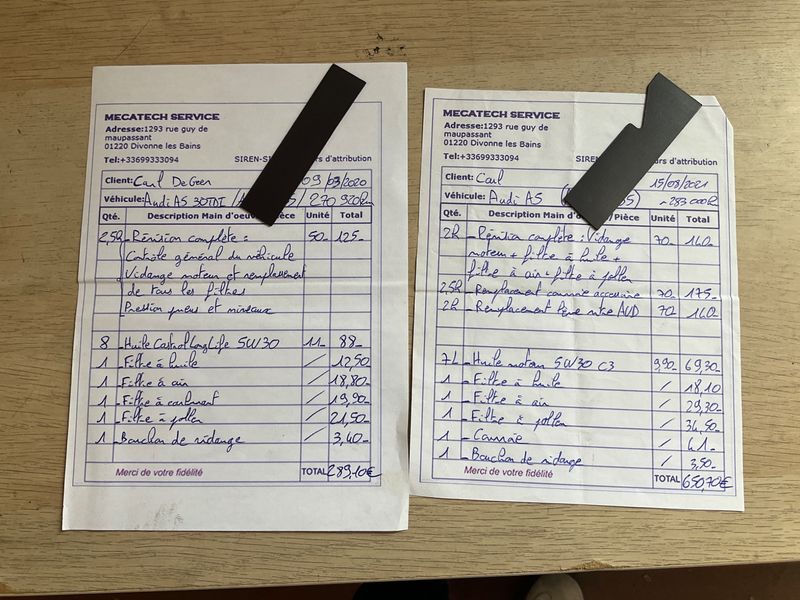 MECATECH SERVICE
Adresse:1293 rue guy de
maupassant
01220 Divonne les Bains
Tel:+33699333094
SIREN-S
rs d'attribution
Client: Carl De Geen
09/03/2020
Véhicule: Audi A5 30TDI /
/ 270 920km
Qté. Description Main d'oeu Pièce Unité Total
2,5h - Révision complète : 50- 125-
Contrôle général du véhicule
Vidange moteur et remplacement
de tous les filtres
Pression pneus et niveaux
8 - Huile Castrol Long Life 5W30 11- 88-
1 - Filtre à huile / 12,50-
1 - Filtre à air / 18,80-
1 - Filtre à carburant / 19,90-
1 - Filtre à pollen / 21,50-
1 - Bouchon de vidange / 3,40-
Merci de votre fidélité
TOTAL 289,10€
MECATECH SERVICE
Adresse:1293 rue guy de
maupassant
01220 Divonne les Bains
Tel:+33699333094
SIREN-SI
urs d'attribution
Client: Carl
15/08/2021
Véhicule: Audi A5 (
~283000km
Qté. Description Main d'o /Pièce Unité Total
2h - Révision complète : Vidange 70- 140-
moteur + filtre à huile +
filtre à air + filtre à pollen
2,5h - Remplacement courroie accessoire 70- 175-
2h - Remplacement 70- 140-
7L - Huile moteur 5W30 C3 9,90- 69,30-
1 - Filtre à huile / 18,10
1 - Filtre à air / 29,30-
1 - Filtre à pollen / 34,50-
1 - Courroie / 41-
1 - Bouchon de vidange / 3,50-
Merci de votre fidélité
TOTAL 650,70€